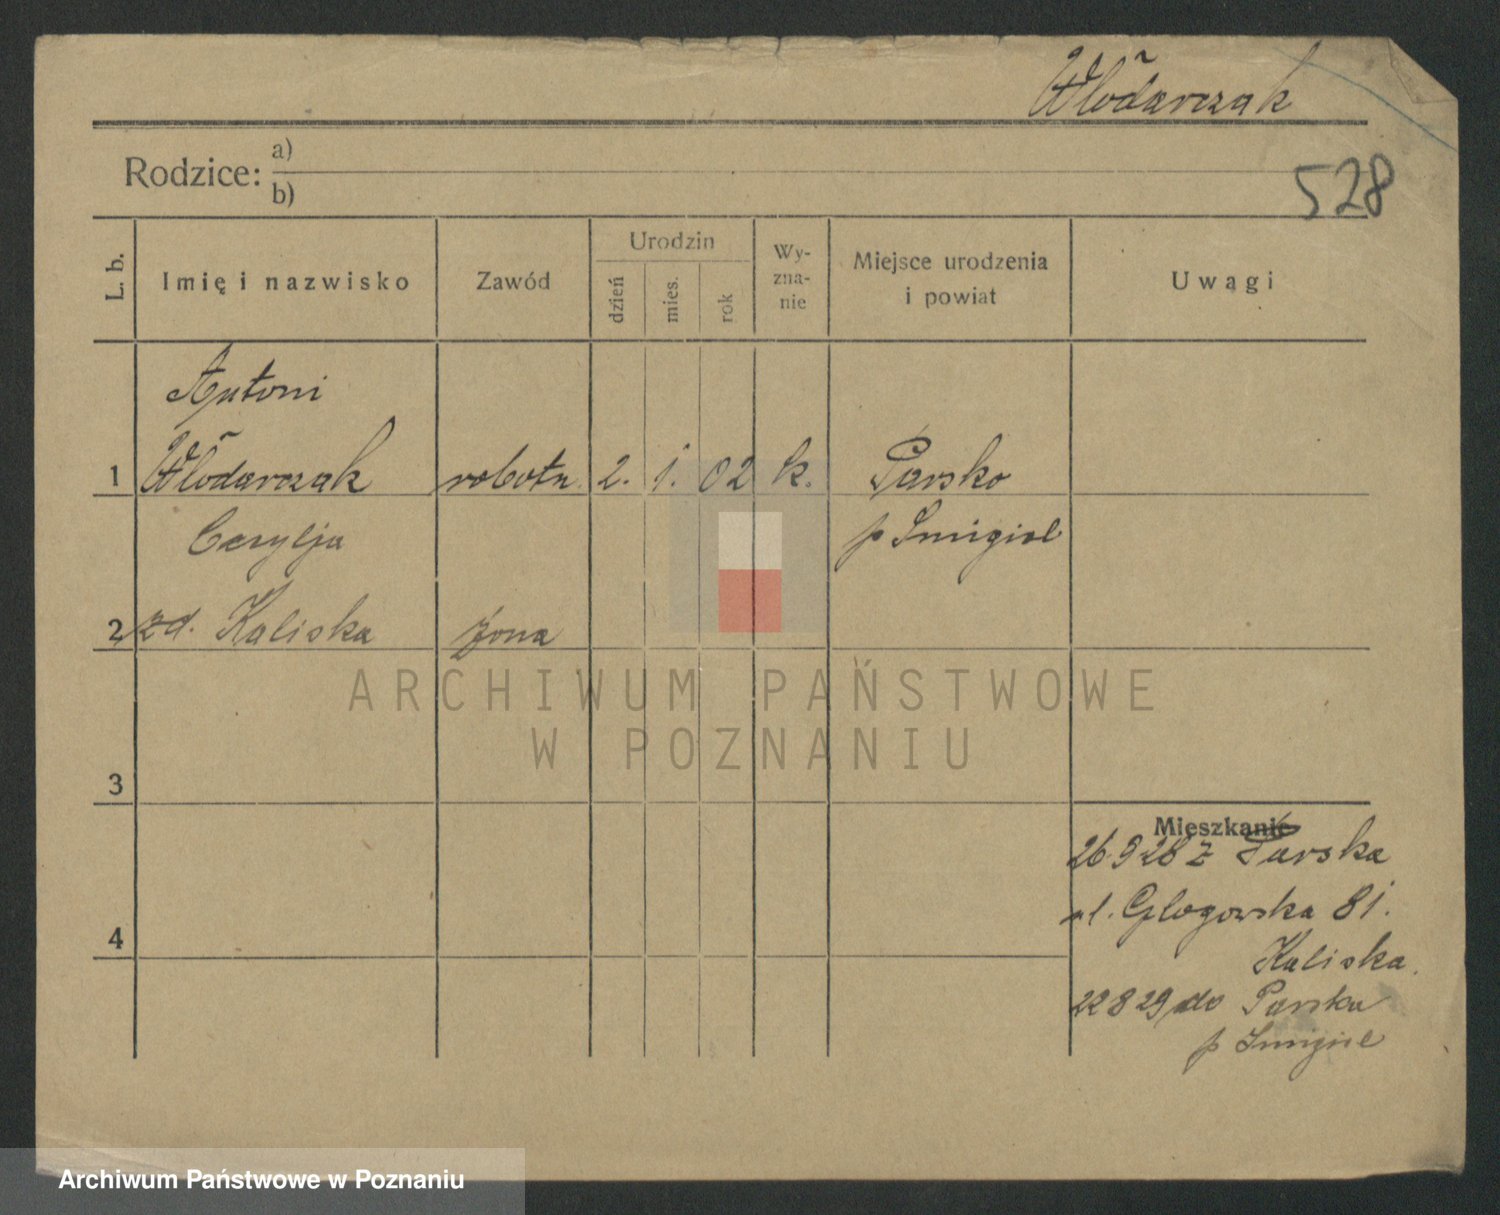 Włodarczak
Rodzice: a)
b)
528
L. b.
Imię i nazwisko
Zawód
Urodzin
dzień
mies.
rok
Wy-
zna-
nie
Miejsce urodzenia
i powiat
Uwagi
Antoni
1 Włodarczak robotn. 2. 1. 02 k. Parsko
Cecylja p Śmigiel
2 zd. Kaliska żona
3
4
Mieszkanie
26 9 28 z Parska
ul. Głogowska 81.
Kaliska.
22 8 29 do Parska
p Śmigiel
ARCHIWUM PAŃSTWOWE
W POZNANIU
Archiwum Państwowe w Poznaniu